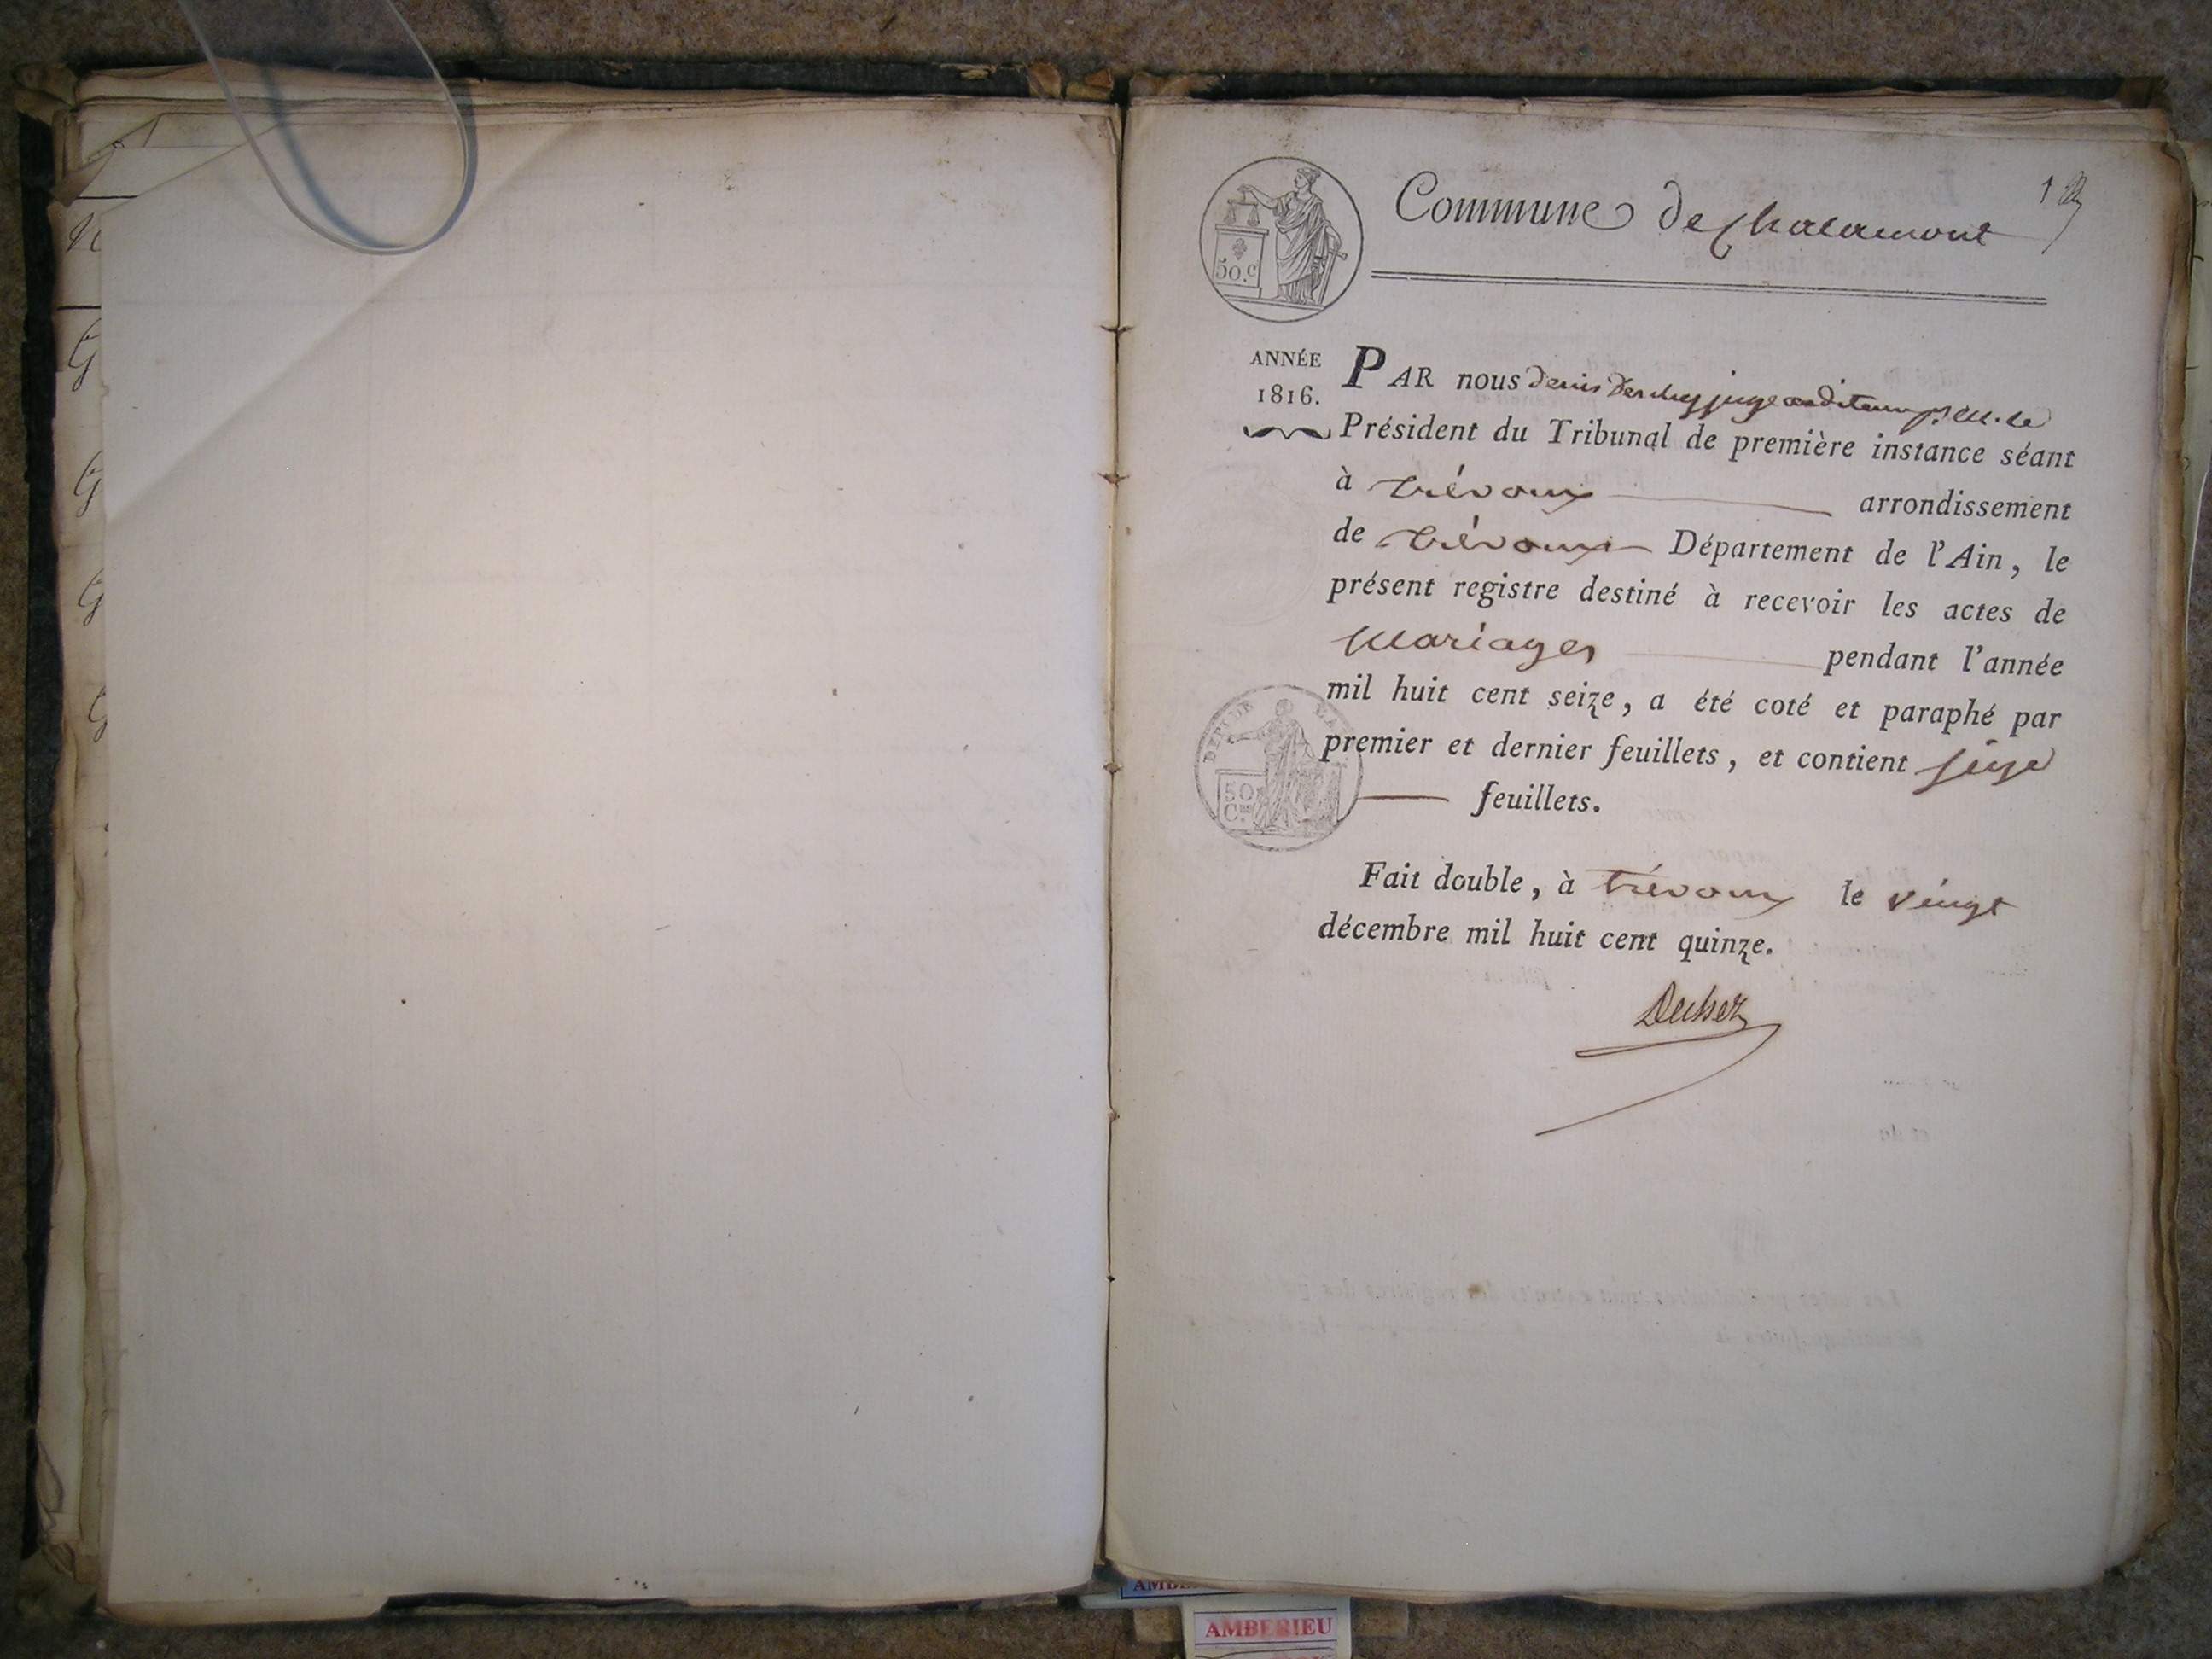 Commune de Chalamont
1
50.c
ANNÉE
1816.
PAR nous denis juge auditeur pr. M. le
Président du Tribunal de première instance séant
à trévoux arrondissement
de trévoux Département de l'Ain, le
présent registre destiné à recevoir les actes de
Mariages pendant l'année
mil huit cent seize, a été coté et paraphé par
premier et dernier feuillets, et contient seize
feuillets.
50
Cmes
Fait double, à trévoux le vingt
décembre mil huit cent quinze.
AMBERIEU